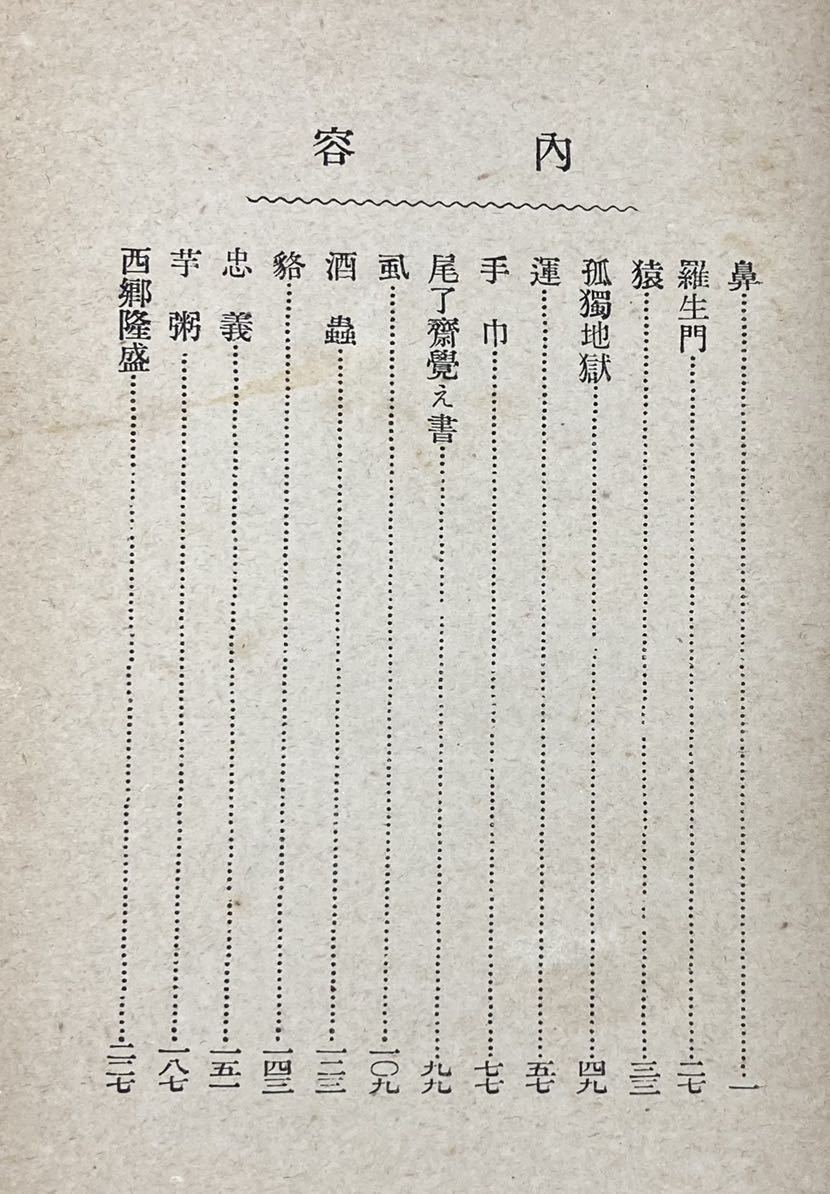 內容
鼻…一
羅生門…二七
猿…三三
孤獨地獄…四九
運…五七
手巾…七七
尾了齋覺え書…九九
虱…一〇九
酒蟲…一二三
貉…一四三
忠義…一五一
芋粥…一八七
西鄉隆盛…二二七